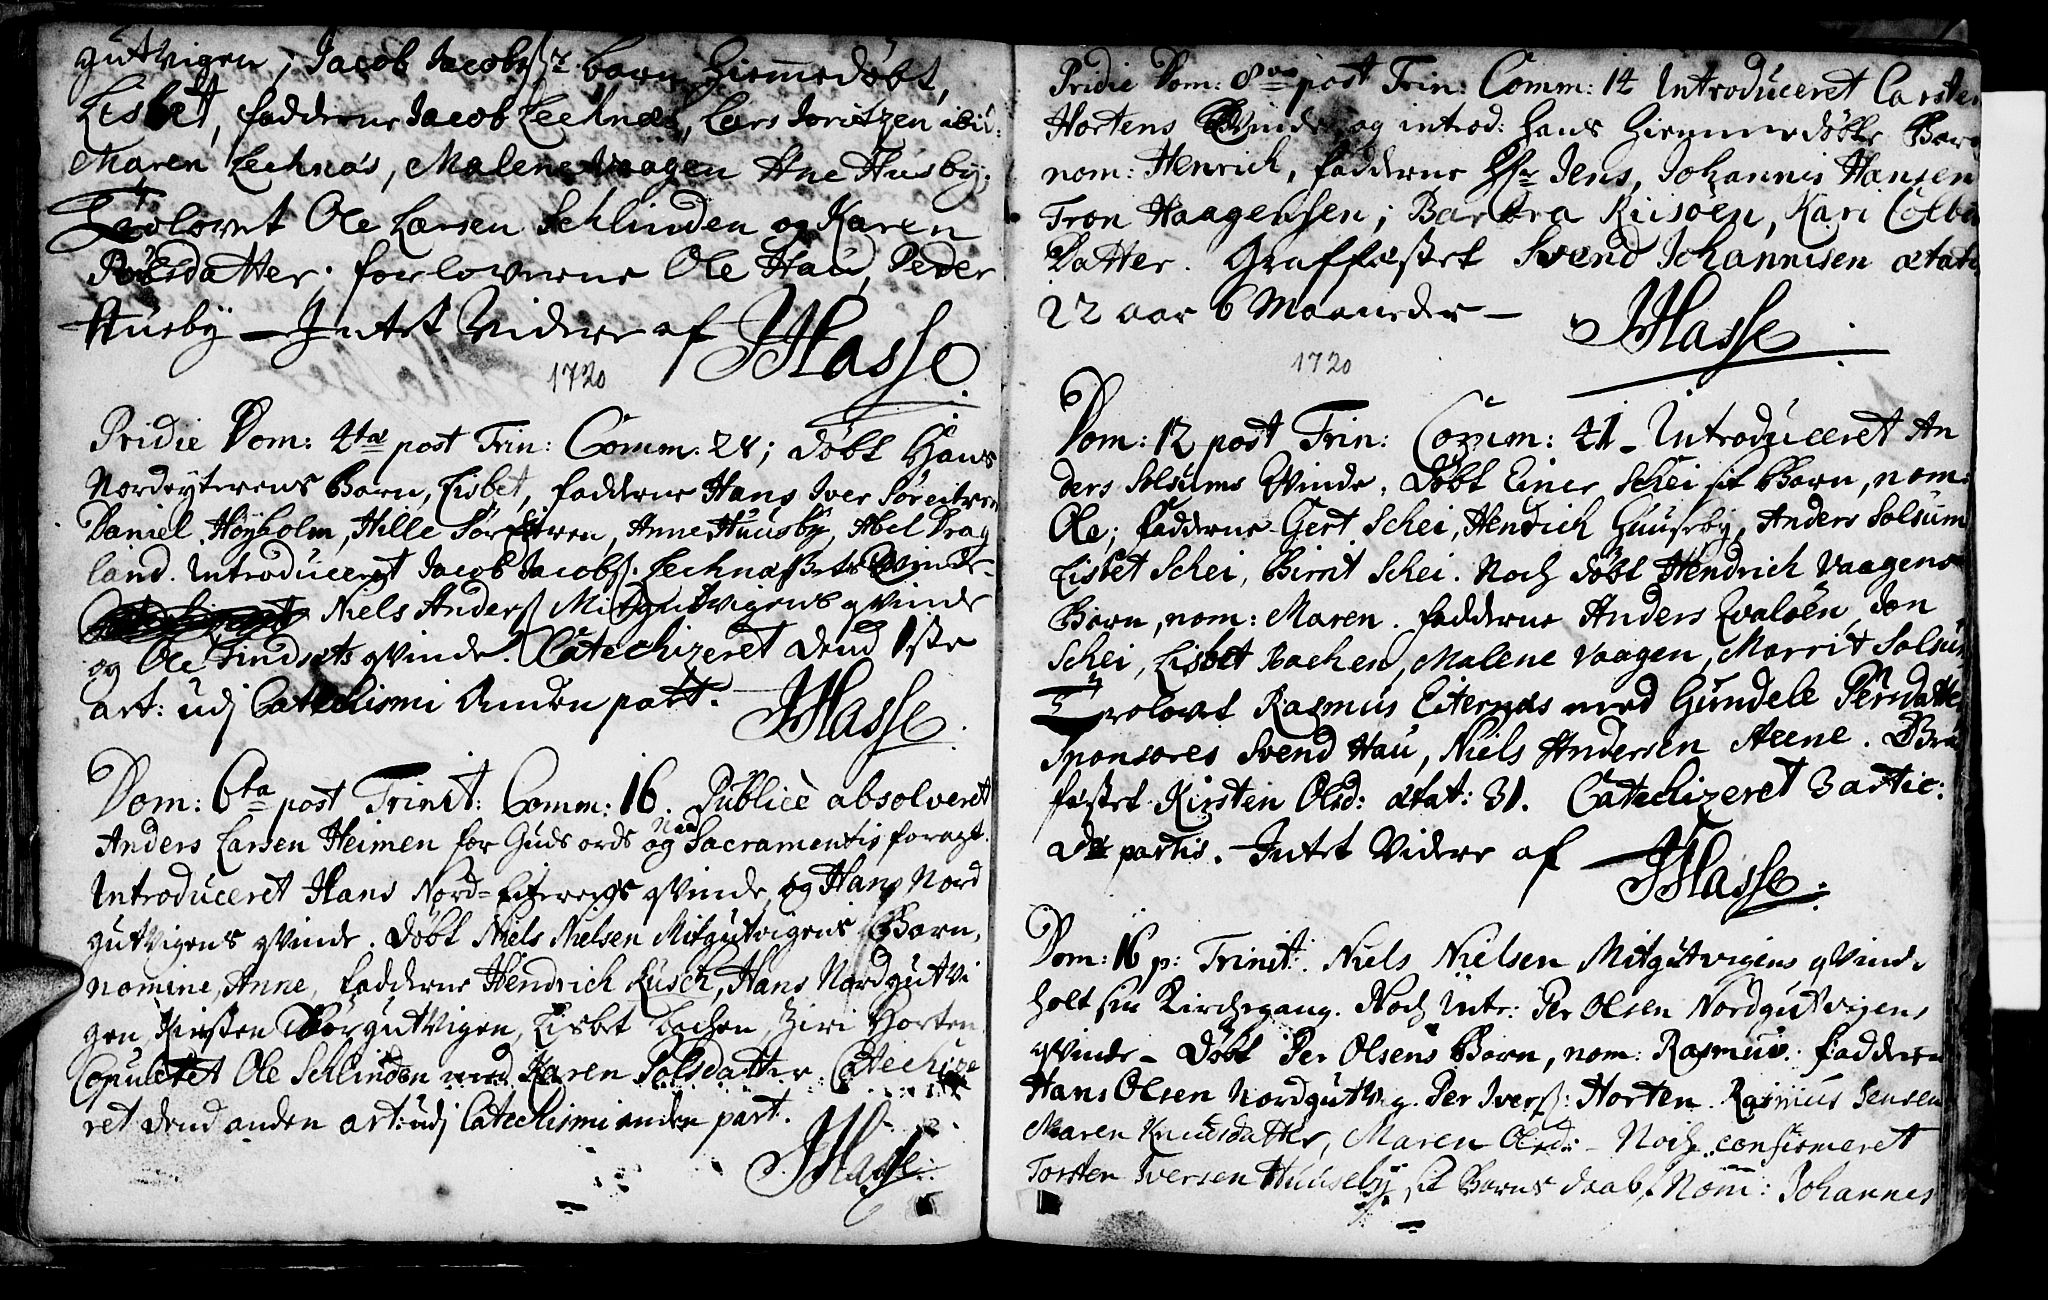 gutvigen, Jacob Jacobs: barn hiemmedøbt,
Lisbet, fadderne Jacob Lechnæs, Lars Joritzen ibid:
Maren Lechnæs, Malene Vaagen Ane Husby;
Trolovet Ole Larsen Schlinden og Karen
Polsdatter. forloverne Ole Hau, Peder
Husby – Intet Videre af JHasse
1720
Pridie Dom: 4ta post Trin: Comm: 28; døbt Hans
Nordeyterens Barn, Lisbet, fadderne Hans Iver Søreiteren
Daniel Høyholm, Hille Sør Eitren, Anne Huusby, Abel Drag
land. Introduceret Jacob Jacobs: Lechnæs qvinde
Niels Anders Mitgutvigens qvinde
og Ole Findsets qvinde. Catechizeret dend 1ste
art: udj Catechismi Anden part.
JHasse
Dom: 6ta post Trinit: Comm: 16. Publicè absolveret
Anders Larsen Heimen for Guds ords og Sacramentis foragt.
Introduceret Hans Nord-Eiterens qvinde, og Hans Nord
gutvigens qvinde. Døbt Niels Nielsen Mitgutvigens Barn,
nomine, Anne, fadderne Hendrich Kusch, Hans Nordgutvi
gen, Kirsten Sørgutvigen, Lisbet Lechen, Ziri Horten
Copuleret Ole Schlinden med Karen Polsdatter. Catechize
ret dend anden art: udj Catechismi anden part.
JHasse
Pridie Dom: 8va post Trin: Comm: 14 Introduceret Carsten
Hortens Qvinde, og introd: hans hiemmedøbte Barn
nom: Henrich, fadderne Hr Jens, Johannis Hansen
Tron Haagensen; Barbra Riisøen, Kari Colbens
Datter. Graffæstet Svend Johannisen ætatis
22 aar 6 Maaneder –
JHasse
1720
Dom: 12 post Trin: Comm: 41 – Introduceret An
ders Solsums Qvinde, Døbt Einer Schei sit Barn, nom:
Ole; fadderne Gert Schei, Hendrich Huuseby, Anders Solsum
Lisbet Schei, Birrit Schei. Noch døbt Hendrich Vaagens
Barn, nom: Maren. fadderne Anders Evaløen, Jon
Schei, Lisbet Bachen, Malene Vaagen, Marrit Solsum
Trolovet Rasmus Eiternæs med Gundele Persdatter
Sponsores Svend Hau, Niels Andersen Aeene. Graf
fæstet Kirsten Olsd: ætat: 31. Catechizeret 3 artic:
partis. Intet Videre af
JHasse
Dom: 16 p: Trinit: Niels Nielsen Mitgutvigens qvinde
holt sin Kirchegang. Noch Intr: Per Olsen Nordgutvigens
qvinde – Døbt Per Olsens Barn, nom: Rasmus. Fadderne
Hans Olsen Nordgutvig. Per Ivers: Horten. Rasmus Jensen
Maren Knudsdatter, Maren Olsd: – Noch confirmeret
Torsten Iversen Huuseby sit Barns daab, Nom: Johannes